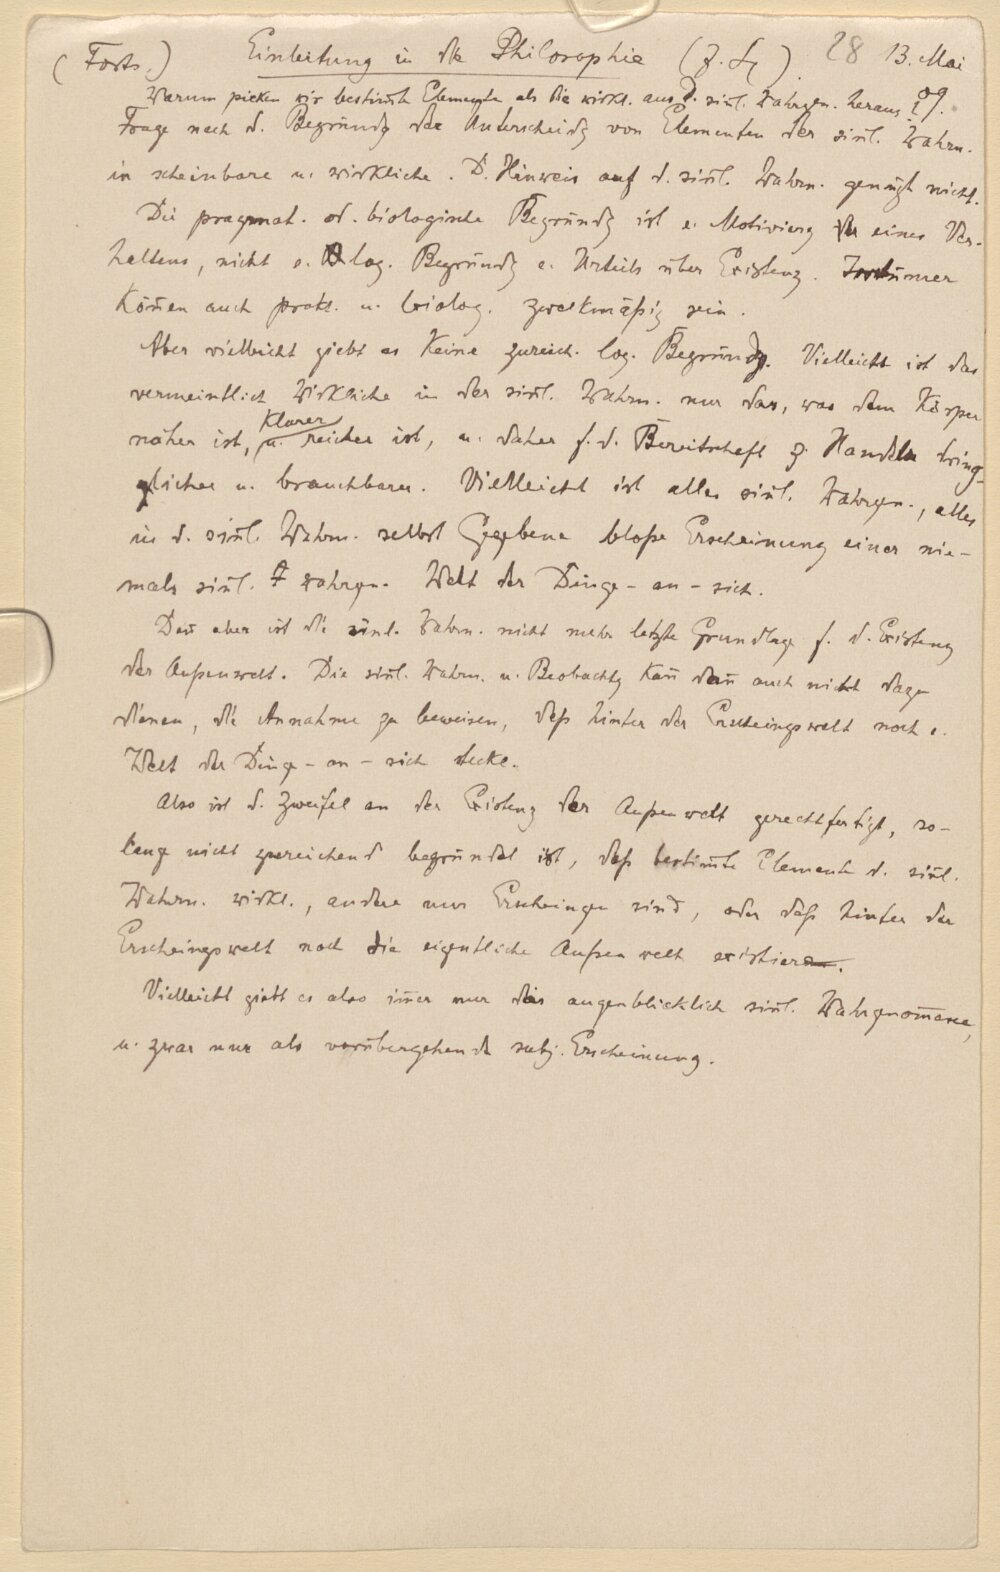 (Forts.) Einleitung in die Philosophie (J. Sy). 28 13. Mai 09.
Warum picken wir bestimte Elemente als die wirkl. aus d. sinl. Wahrgen. heraus?
Frage nach d. Begründg der Unterscheidg von Elementen der sinl. Wahrn.
in scheinbare u. wirkliche. D. Hinweis auf d. sinl. Wahrn. genügt nicht.
Die pragmat. od. biologische Begründg ist e. Motivierg eines Ver-
haltens, nicht e. log. Begründg e. Urteils über Existenz. Irrtümer
könen auch prakt. u. biolog. zweckmäßig sein.
Aber vielleicht giebt es keine zureich. log. Begründg. Vielleicht ist das
vermeintlich Wirkliche in der sinl. Wahrn. nur das, was dem Körper
näher ist, klarer u. reicher ist, u. daher f. d. Bereitschaft z. Handeln dring-
licher u. brauchbarer. Vielleicht ist alles sinl. Wahrgen., alles
in d. sinl. Wahrn. selbst Gegebene bloße Erscheinung einer nie-
mals sinl. wahrgen. Welt der Dinge-an-sich.
Dan aber ist die sinl. Wahrn. nicht mehr letzte Grundlage f. d. Existenz
der Außenwelt. Die sinl. Wahrn. u. Beobachtg kan dan auch nicht dazu
dienen, die Annahme zu beweisen, daß hinter der Erscheingswelt noch e.
Welt der Dinge-an-sich stecke.
Also ist d. Zweifel an der Existenz der Außenwelt gerechtfertigt, so-
lange nicht zureichend begründet ist, daß bestimte Elemente d. sinl.
Wahrn. wirkl., andere nur Erscheingen sind, oder daß hinter der
Erscheingswelt noch die eigentliche Außenwelt existiere.
Vielleicht giebt es also imer nur das augenblicklich sinl. Wahrgenomene,
u. zwar nur als vorübergehende subj. Erscheinung.